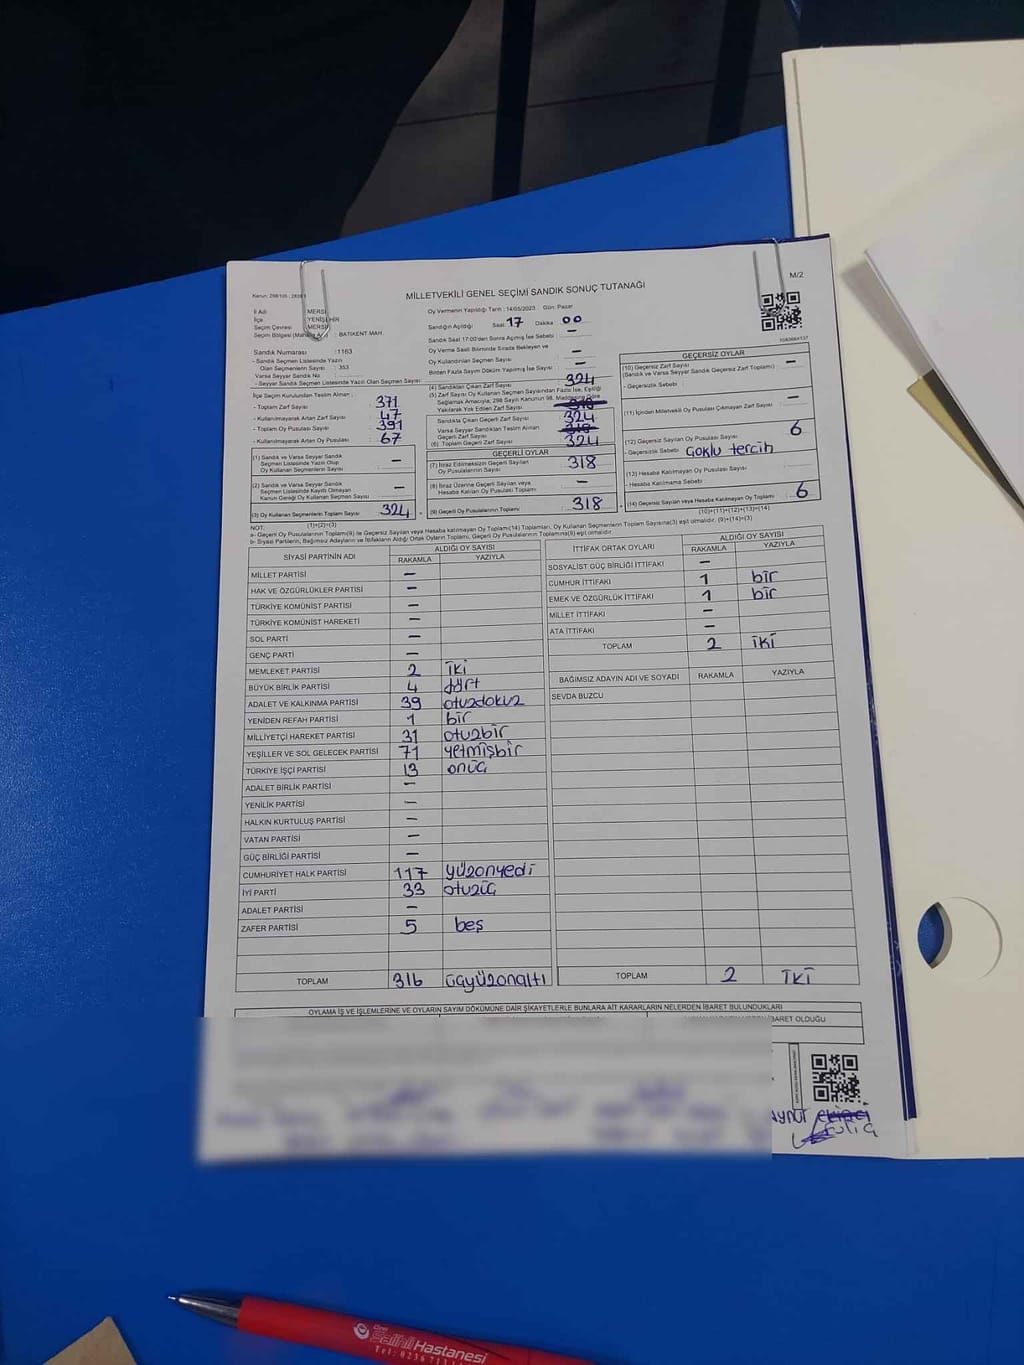 MİLLETVEKİLİ GENEL SEÇİMİ SANDIK SONUÇ TUTANAĞI
M/2
İl Adı : MERSİ
İlçe : YENİŞEHİR
Seçim Çevresi : MERSİ
BATIKENT MAH.
Oy Vermenin Yapıldığı Tarih : 14/05/2023 Gün: Pazar
Sandığın Açıldığı Saat: 17 Dakika 00
Sandık Saat 17:00'den Sonra Açılmış İse Sebebi : —
Oy Verme Saati Bitiminde Sırada Bekleyen ve
Oy Kullandırılan Seçmen Sayısı : —
Birden Fazla Sayım Döküm Yapılmış İse Sayısı : —
Sandık Numarası : 1163
- Sandık Seçmen Listesinde Yazılı
Olan Seçmenlerin Sayısı : 353
Varsa Seyyar Sandık No
- Seyyar Sandık Listesinde Yazılı Olan Seçmen Sayısı
İlçe Seçim Kurulundan Teslim Alınan ;
- Toplam Zarf Sayısı : 371
- Kullanılmayarak Artan Zarf Sayısı : 47
- Toplam Oy Pusulası Sayısı : 391
- Kullanılmayarak Artan Oy Pusulası : 67
(1) Sandık ve Varsa Seyyar Sandık
Seçmen Listesinde Yazılı Olup
Oy Kullanan Seçmenlerin Sayısı —
(2) Sandık ve Varsa Seyyar Sandık
Listesinde Kayıtlı Olmayan
Kanun Gereği Oy Kullanan Seçmen Sayısı —
(3) Oy Kullanan Seçmenlerin Toplam Sayısı 324
(1)+(2)=(3)
(4) Sandıktan Çıkan Zarf Sayısı : 324
(5) Zarf Sayısı Oy Kullanan Seçmen Sayısından Fazla İse, Eşitliği
Sağlamak Amacıyla, 298 Sayılı Kanunun 98. Maddesine Göre
Yakılarak Yok Edilen Zarf Sayısı
Sandıkta Çıkan Geçerli Zarf Sayısı : 324
Varsa Seyyar Sandıktan Teslim Alınan
Geçerli Zarf Sayısı
(6) Toplam Geçerli Zarf Sayısı : 324
GEÇERLİ OYLAR
(7) İtiraz Edilmeksizin Geçerli Sayılan
Oy Pusulalarının Sayısı : 318
(8) İtiraz Üzerine Geçerli Sayılan veya
Hesaba Katılan Oy Pusulası Toplamı —
(9) Geçerli Oy Pusulalarının Toplamı : 318
GEÇERSİZ OYLAR
(10) Geçersiz Zarf Sayısı
(Sandık ve Varsa Seyyar Sandık Geçersiz Zarf Toplamı) —
- Geçersizlik Sebebi :
(11) İçinden Milletvekili Oy Pusulası Çıkmayan Zarf Sayısı —
(12) Geçersiz Sayılan Oy Pusulası Sayısı 6
- Geçersizlik Sebebi : Çoklu tercih
(13) Hesaba Katılmayan Oy Pusulası Sayısı —
- Hesaba Katılmama Sebebi :
(14) Geçersiz Sayılan veya Hesaba Katılmayan Oy Toplamı : 6
(10)+(11)+(12)+(13)=(14)
NOT:
a- Geçerli Oy Pusulalarının Toplamı(9) ile Geçersiz Sayılan veya Hesaba katılmayan Oy Toplamı(14) Toplamları, Oy Kullanan Seçmenlerin Toplam Sayısına(3) eşit olmalıdır. (9)+(14)=(3)
b- Siyasi Partilerin, Bağımsız Adayların ve İttifakların Aldığı Ortak Oyların Toplamı, Geçerli Oy Pusulalarının Toplamına(9) eşit olmalıdır.
SİYASİ PARTİNİN ADI ALDIĞI OY SAYISI
RAKAMLA YAZIYLA
MİLLET PARTİSİ —
HAK VE ÖZGÜRLÜKLER PARTİSİ —
TÜRKİYE KOMÜNİST PARTİSİ —
TÜRKİYE KOMÜNİST HAREKETİ —
SOL PARTİ —
GENÇ PARTİ —
MEMLEKET PARTİSİ 2 iki
BÜYÜK BİRLİK PARTİSİ 4 dört
ADALET VE KALKINMA PARTİSİ 39 otuzdokuz
YENİDEN REFAH PARTİSİ 1 bir
MİLLİYETÇİ HAREKET PARTİSİ 31 otuzbir
YEŞİLLER VE SOL GELECEK PARTİSİ 71 yetmişbir
TÜRKİYE İŞÇİ PARTİSİ 13 onüç
ADALET BİRLİK PARTİSİ —
YENİLİK PARTİSİ —
HALKIN KURTULUŞ PARTİSİ —
VATAN PARTİSİ —
GÜÇ BİRLİĞİ PARTİSİ —
CUMHURİYET HALK PARTİSİ 117 yüzonyedi
İYİ PARTİ 33 otuzüç
ADALET PARTİSİ —
ZAFER PARTİSİ 5 beş
TOPLAM 316 üçyüzonaltı
İTTİFAK ORTAK OYLARI ALDIĞI OY SAYISI
RAKAMLA YAZIYLA
SOSYALİST GÜÇ BİRLİĞİ İTTİFAKI —
CUMHUR İTTİFAKI 1 bir
EMEK VE ÖZGÜRLÜK İTTİFAKI 1 bir
MİLLET İTTİFAKI —
ATA İTTİFAKI —
TOPLAM 2 iki
BAĞIMSIZ ADAYIN ADI VE SOYADI RAKAMLA YAZIYLA
SEVDA BUZCU
TOPLAM 2 iki
OYLAMA İŞ VE İŞLEMLERİNE VE OYLARIN SAYIM DÖKÜMÜNE DAİR ŞİKAYETLERLE BUNLARA AİT KARARLARIN NELERDEN İBARET BULUNDUKLARI
İBARET OLDUĞU
Salihli Hastanesi